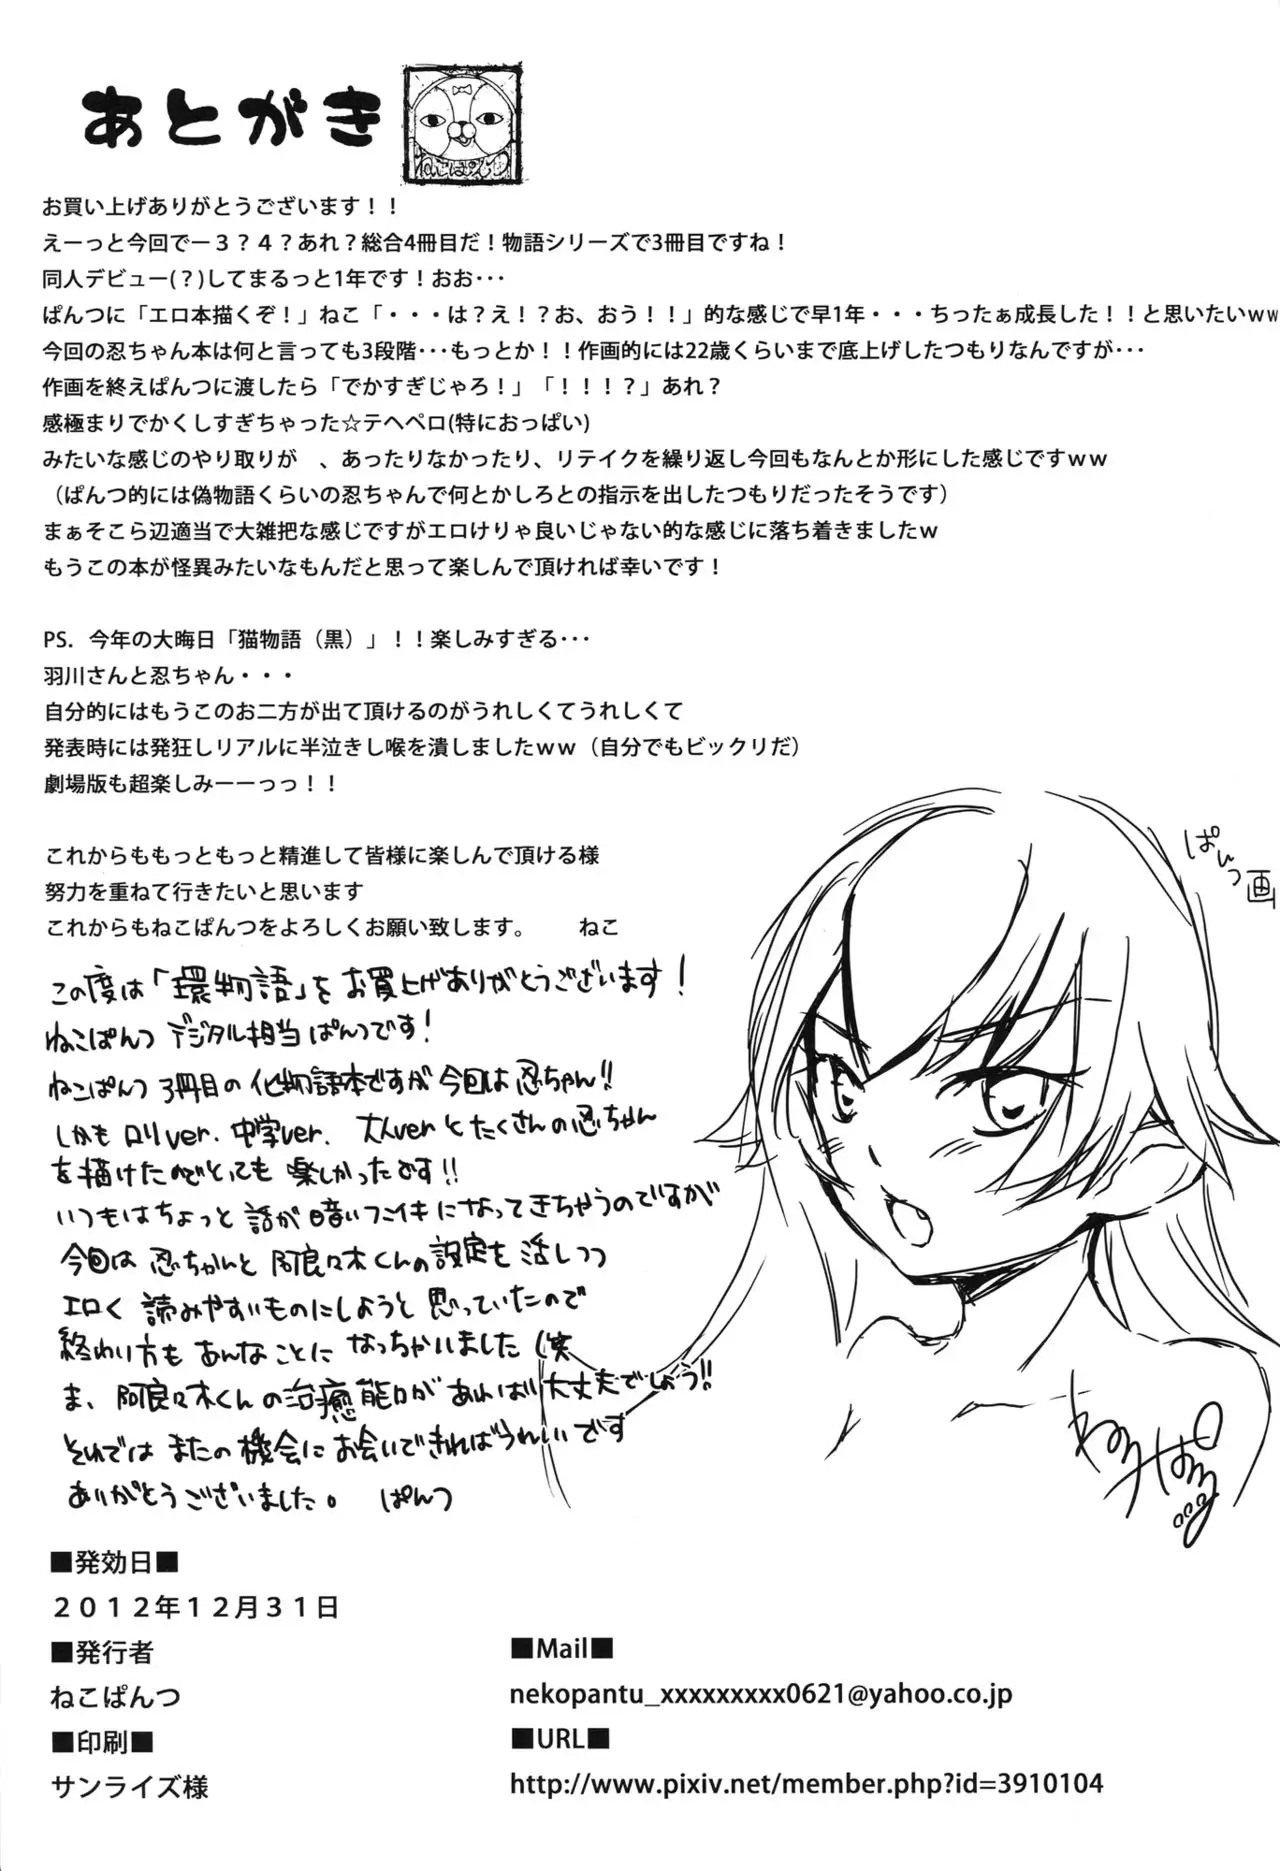 あとがき
ねこぱんつ
お買い上げありがとうございます！！
えーっと今回でー３？４？あれ？総合4冊目だ！物語シリーズで3冊目ですね！
同人デビュー(？)してまるっと1年です！おお･･･
ぱんつに「エロ本描くぞ！」ねこ「・・・は？え！？お、おう！！」的な感じで早1年・・・ちったぁ成長した！！と思いたいｗｗ
今回の忍ちゃん本は何と言っても3段階･･･もっとか！！作画的には22歳くらいまで底上げしたつもりなんですが･･･
作画を終えぱんつに渡したら「でかすぎじゃろ！」「！！！？」あれ？
感極まりでかくしすぎちゃった☆テヘペロ(特におっぱい)
みたいな感じのやり取りが　、あったりなかったり、リテイクを繰り返し今回もなんとか形にした感じですｗｗ
（ぱんつ的には偽物語くらいの忍ちゃんで何とかしろとの指示を出したつもりだったそうです）
まぁそこら辺適当で大雑把な感じですがエロけりゃ良いじゃない的な感じに落ち着きましたｗ
もうこの本が怪異みたいなもんだと思って楽しんで頂ければ幸いです！
PS．今年の大晦日「猫物語（黒）」！！楽しみすぎる･･･
羽川さんと忍ちゃん・・・
自分的にはもうこのお二方が出て頂けるのがうれしくてうれしくて
発表時には発狂しリアルに半泣きし喉を潰しましたｗｗ（自分でもビックリだ）
劇場版も超楽しみーーっっ！！
これからももっともっと精進して皆様に楽しんで頂ける様
努力を重ねて行きたいと思います
これからもねこぱんつをよろしくお願い致します。　　ねこ
ぱんつ画
この度は「環物語」をお買上げありがとうございます！
ねこぱんつ デジタル担当 ぱんつです！
ねこぱんつ 3冊目の化物語本ですが今回は忍ちゃん!!
しかもロリver. 中学ver. 大人verとたくさんの忍ちゃん
を描けたのでとっても楽しかったです!!
いつもはちょっと話が暗いフンイキになってきちゃうのですが
今回は忍ちゃんと阿良々木くんの設定を活しつつ
エロく読みやすいものにしようと思っていたので
終わり方もあんなことになっちゃいました（笑
ま、阿良々木くんの治癒能力があれば大丈夫でしょう!!
それではまたの機会にお会いできればうれしいです
ありがとうございました。　ぱんつ
ねこぱんつ
■発効日■
２０１２年１２月３１日
■発行者
ねこぱんつ
■印刷■
サンライズ様
■Mail■
nekopantu_xxxxxxxxx0621@yahoo.co.jp
■URL■
http://www.pixiv.net/member.php?id=3910104